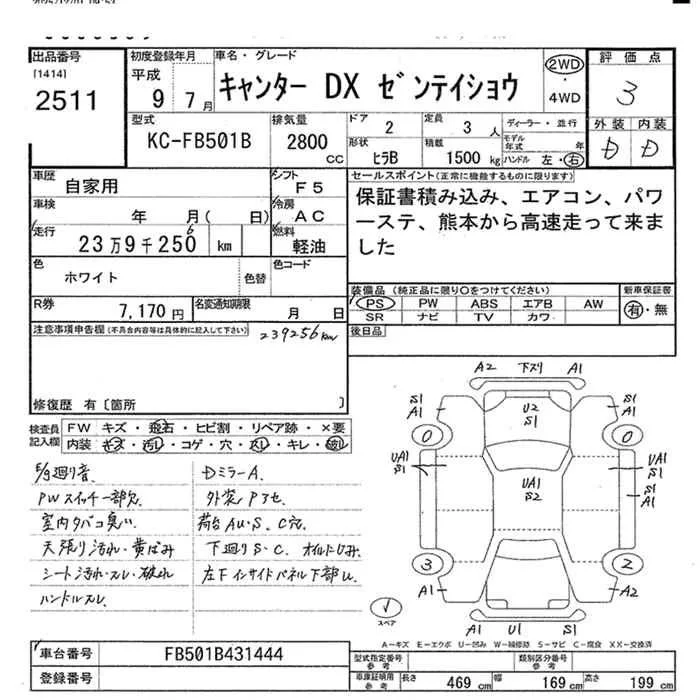 出品番号
[1414]
2511
初度登録年月
平成 9年 7月
車名・グレード
キャンター DX ゼンテイショウ
2WD
・
4WD
評価点
3
外装 内装
D D
型式
KC-FB501B
排気量
2800 CC
ドア
2
定員
3 人
形状
ヒラB
積載
1500 kg
ディーラー・並行
モデル年式 年
ハンドル 左・右
車歴
自家用
シフト
F5
車検
年 月( 日)
冷房
AC
走行
23万9千250 km
6
燃料
軽油
色
ホワイト
色替
色コード
R券
7,170円
名変通知期限
月 日
セールスポイント(正常に機能するものに限ります)
保証書積み込み、エアコン、パワ
ーステ、熊本から高速走って来ま
した
装備品(純正品に限り○をつけてください)
PS PW ABS エアB AW
SR ナビ TV カワ
新車保証書
有・無
後日品
注意事項申告欄(不具合内容等は具体的に記入して下さい)
239256km
修復歴 有〔箇所 〕
検査員記入欄
FW キズ・飛石・ヒビ割・リペア跡・×要
内装 キズ・汚レ・コゲ・穴・スレ・キレ・破レ
E/g廻り音
PWスイッチ一部欠
室内タバコ臭い
天張り汚れ・黄ばみ
シート汚れ・スレ・破れ
ハンドルスレ
DミラーA.
外装Pアセ
荷台AU・S、C穴
下廻りS・C オイルにじみ
左下インサイドパネル下部U
A2 下スリ A1
S1 A1
U2 S1
S1 A1
0 0
UA1 S1
UA1 S2
UA1 S1
S1 A1
3 2
A1 A2
スペア
A1 U1 S1
A-キズ E-エクボ U-凹み W-補修跡 S-サビ C-腐食 XX-交換済
車台番号 FB501B431444
登録番号
型式指定番号 参考
類別区分番号 参考
車庫証明用 参考
長さ 469cm 幅 169cm 高さ 199cm